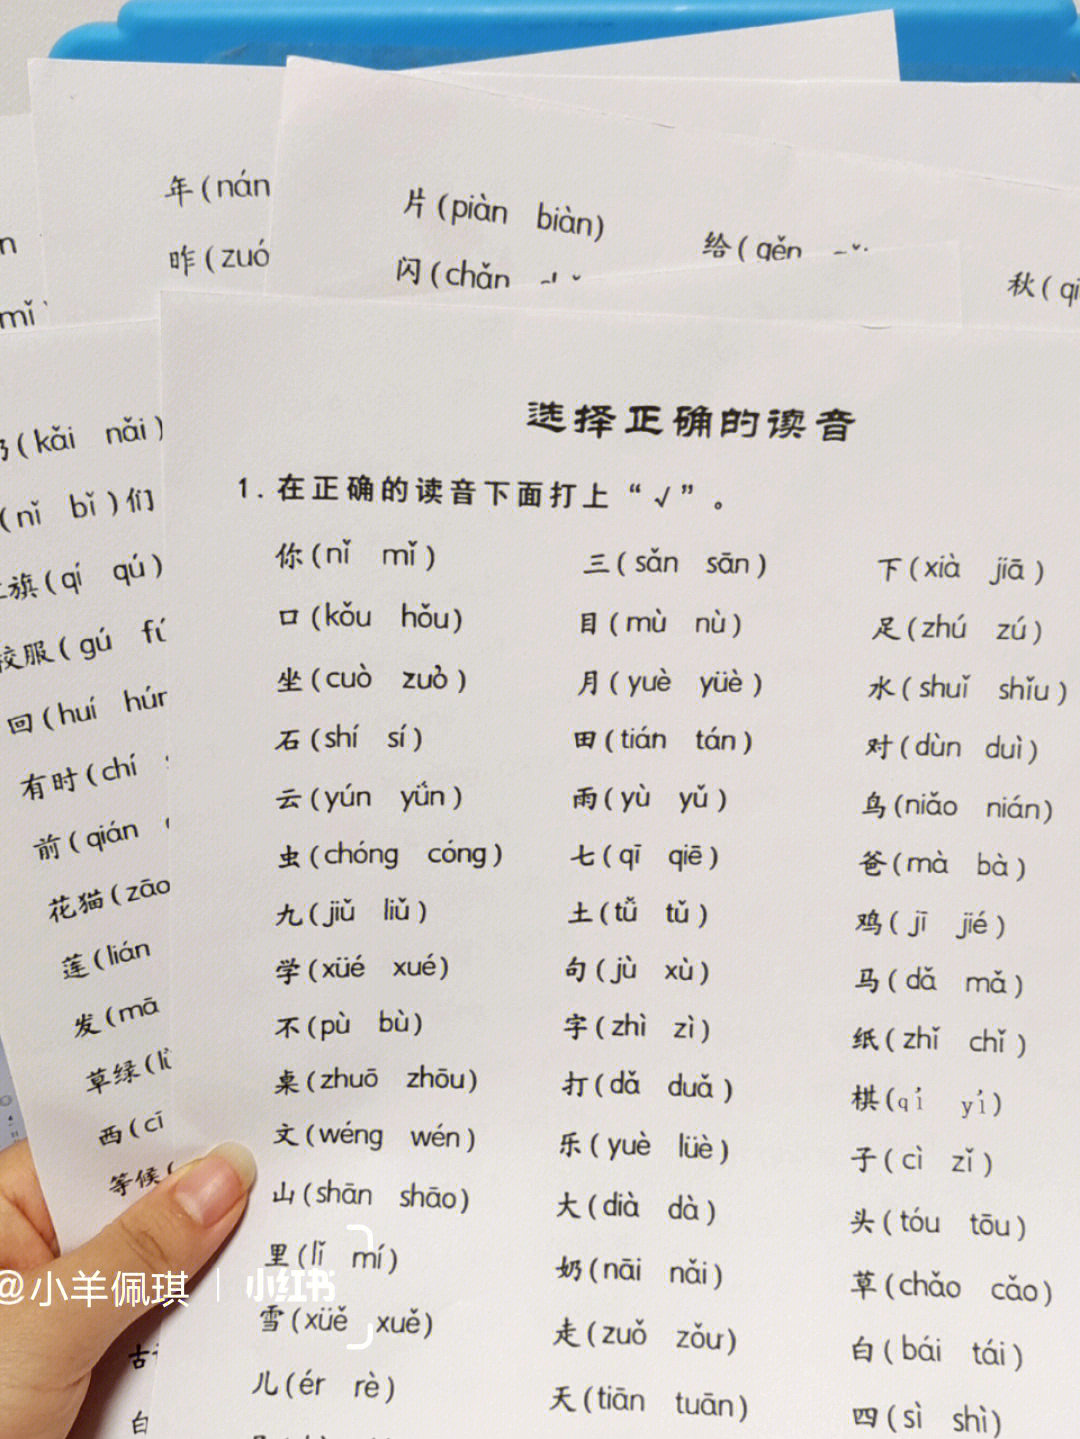 年(nán
昨(zuó
片(piàn biàn)
闪(chǎn
给(gěn
秋(qi
mǐ
(kǎi nǎi)
(nǐ bǐ)们
旗(qí qú)
校服(gú fú
回(huí hún
有时(chí
前(qián
花猫(zāo
莲(lián
发(mā
草绿(lǜ
西(cī
等候(
白
选择正确的读音
1.在正确的读音下面打上“√”。
你(nǐ mǐ) 三(sǎn sān) 下(xià jiā)
口(kǒu hǒu) 目(mù nù) 足(zhú zú)
坐(cuò zuò) 月(yuè yüè) 水(shuǐ shǐu)
石(shí sí) 田(tián tán) 对(dùn duì)
云(yún yǘn) 雨(yù yǔ) 鸟(niǎo nián)
虫(chóng cóng) 七(qī qiē) 爸(mà bà)
九(jiǔ liǔ) 土(tǚ tǔ) 鸡(jī jié)
学(xüé xué) 句(jù xù) 马(dǎ mǎ)
不(pù bù) 字(zhì zì) 纸(zhǐ chǐ)
桌(zhuō zhōu) 打(dǎ duǎ) 棋(qí yí)
文(wéng wén) 乐(yuè lüè) 子(cì zǐ)
山(shān shāo) 大(dià dà) 头(tóu tōu)
里(lǐ mí) 奶(nāi nǎi) 草(chǎo cǎo)
雪(xüě xuě) 走(zuǒ zǒu) 白(bái tái)
儿(ér rè) 天(tiān tuān) 四(sì shì)
@小羊佩琪 | 小红书